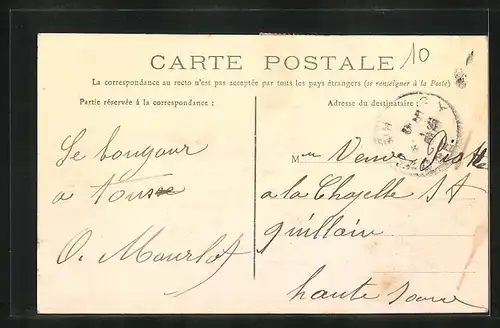 CARTE POSTALE
10
La correspondance au recto n'est pas acceptée par tous les pays étrangers (se renseigner à la Poste)
Partie réservée à la correspondance :
Adresse du destinataire :
Le bonjour
a tous
O. Mourlot
Mme Veuve
a la Chapelle St
quillain
haute Saone